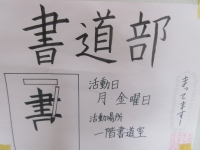 書道部
活動日
月 金曜日
活動場所
一階書道室
まってます!
書